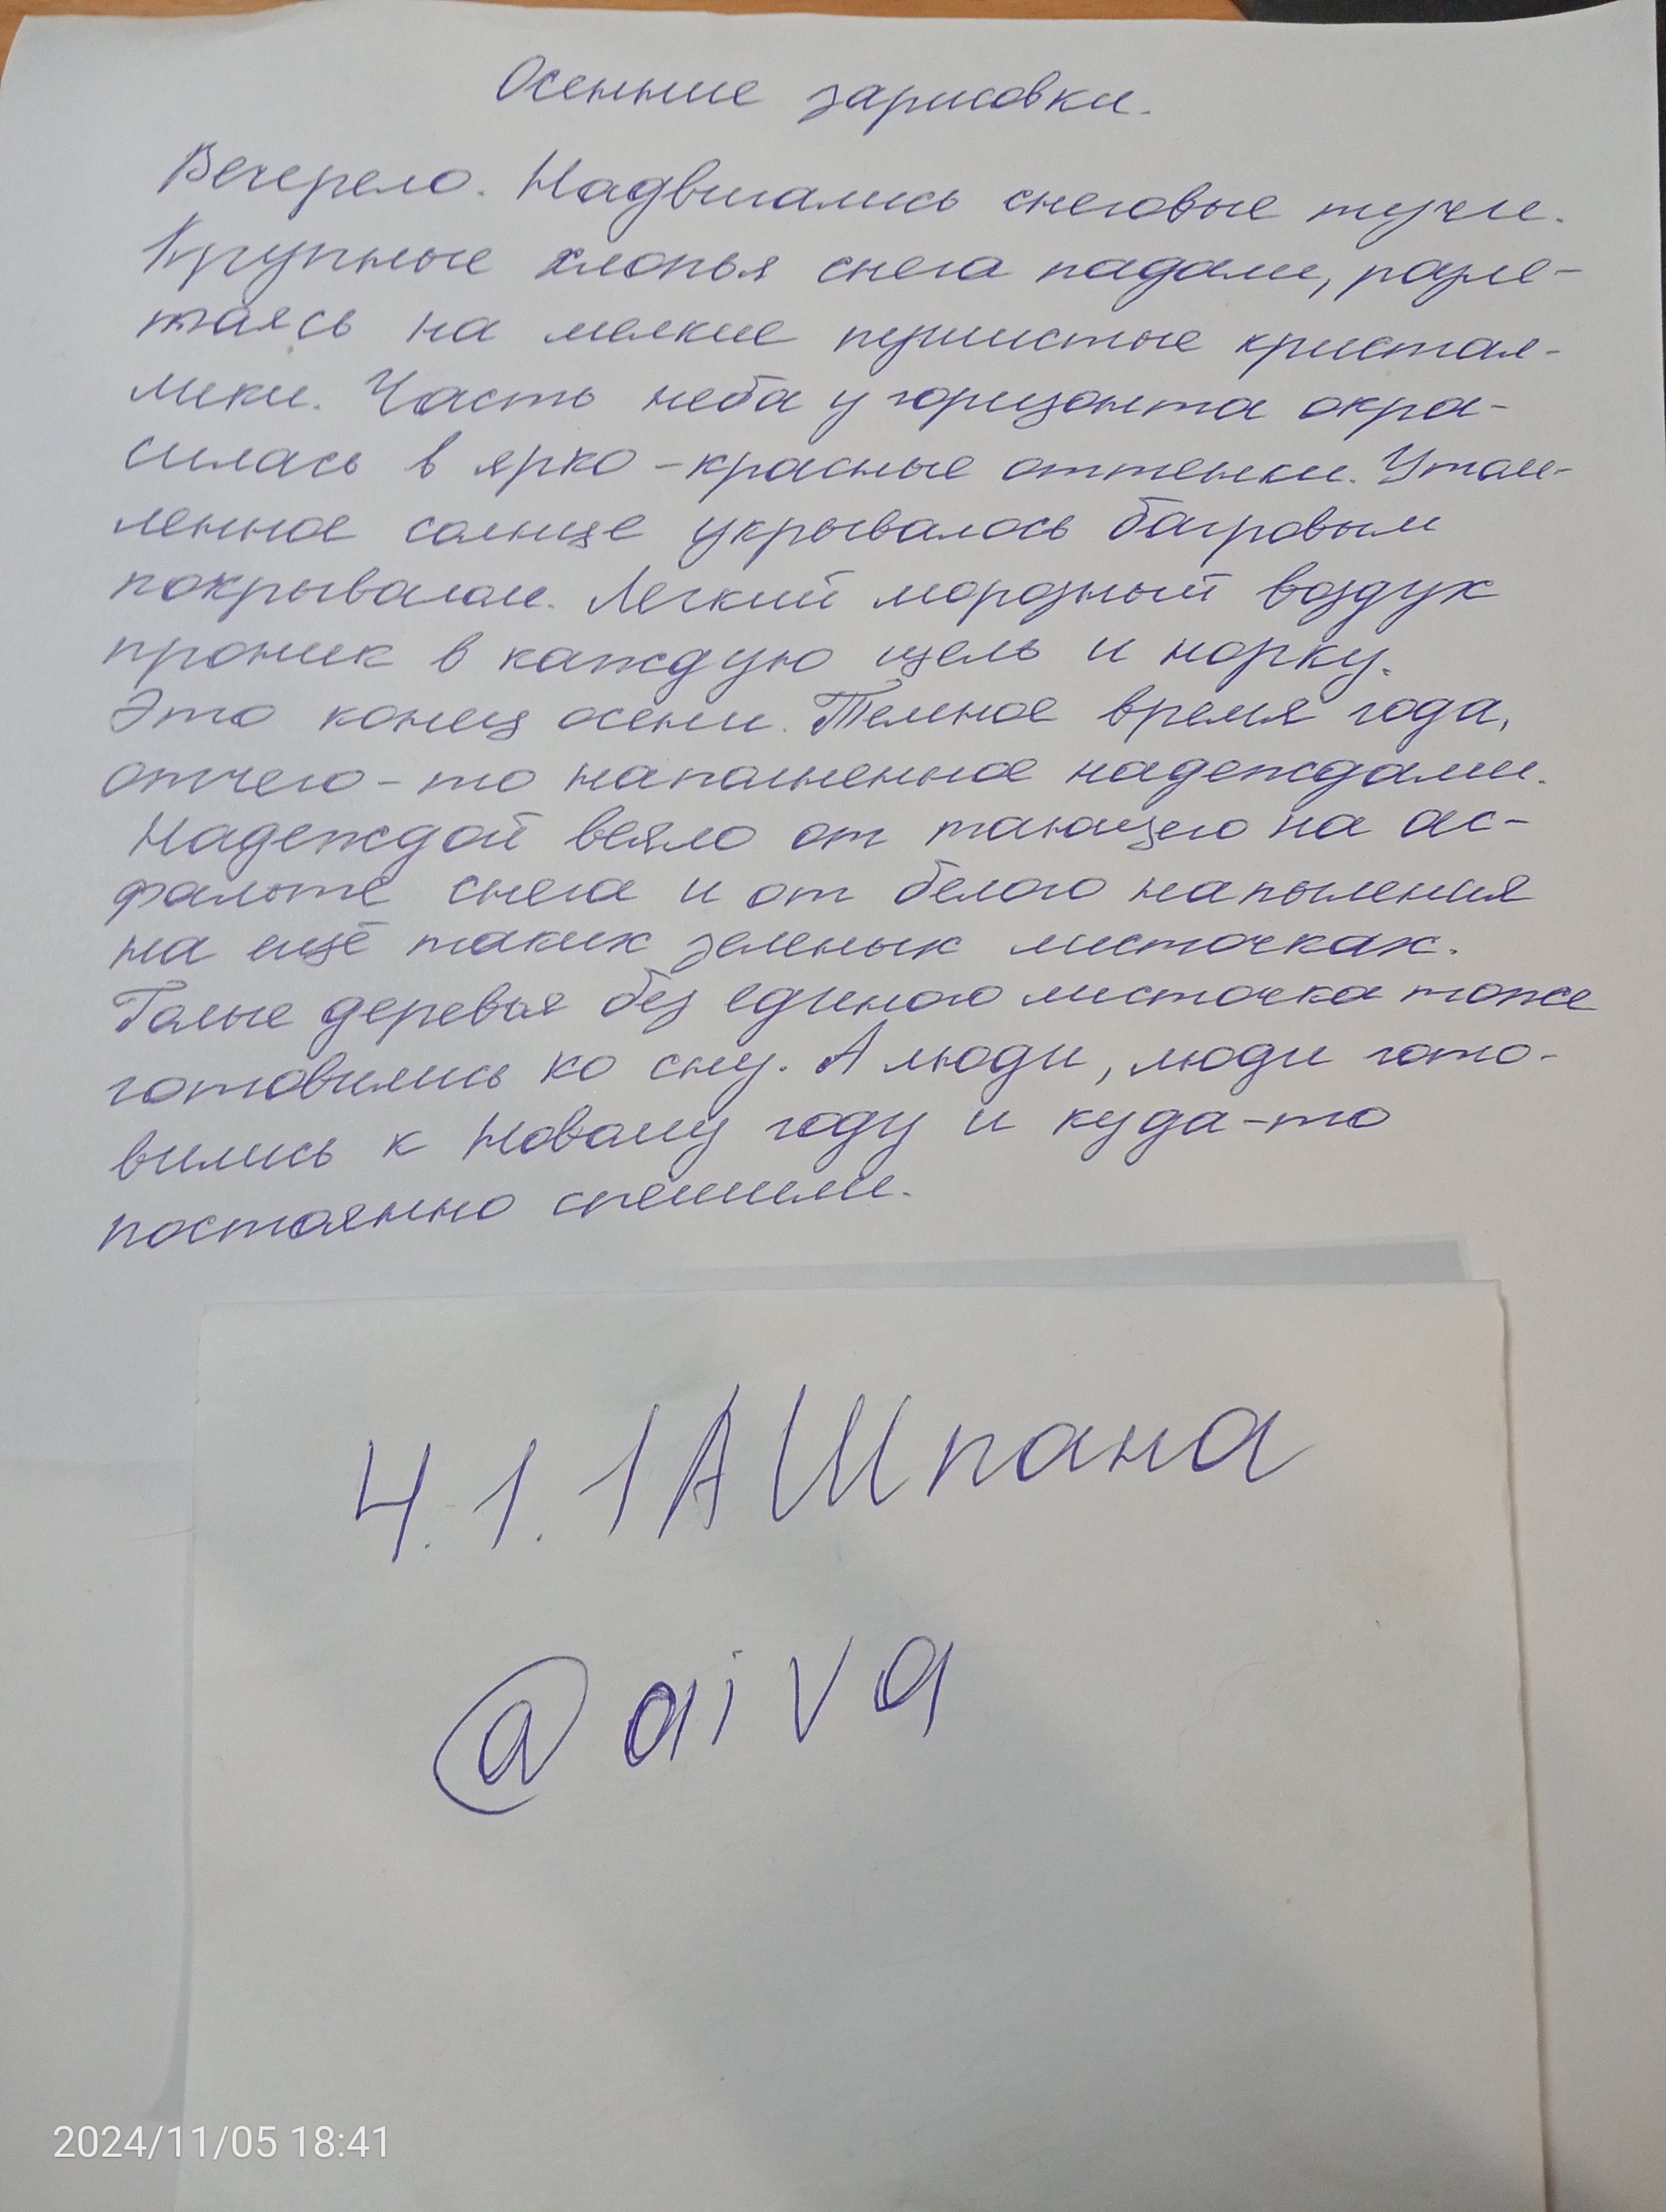 Осенние зарисовки.
Вечерело. Надвигались снеговые тучи.
Крупные хлопья снега падали, разле-
таясь на мелкие пушистые кристал-
лики. Часть неба у горизонта окра-
силась в ярко-красные оттенки. Утом-
ленное солнце укрывалось багровым
покрывалом. Легкий морозный воздух
проник в каждую щель и норку.
Это конец осени. Темное время года,
отчего-то наполненное надеждами.
Надеждой веяло от тающего на ас-
фальте снега и от белого напыления
на ещё таких зеленых листочках.
Голые деревья без единого листочка тоже
готовились ко сну. А люди, люди гото-
вились к Новому году и куда-то
постоянно спешили.
4.1.1АШпана
@aiva
2024/11/05 18:41